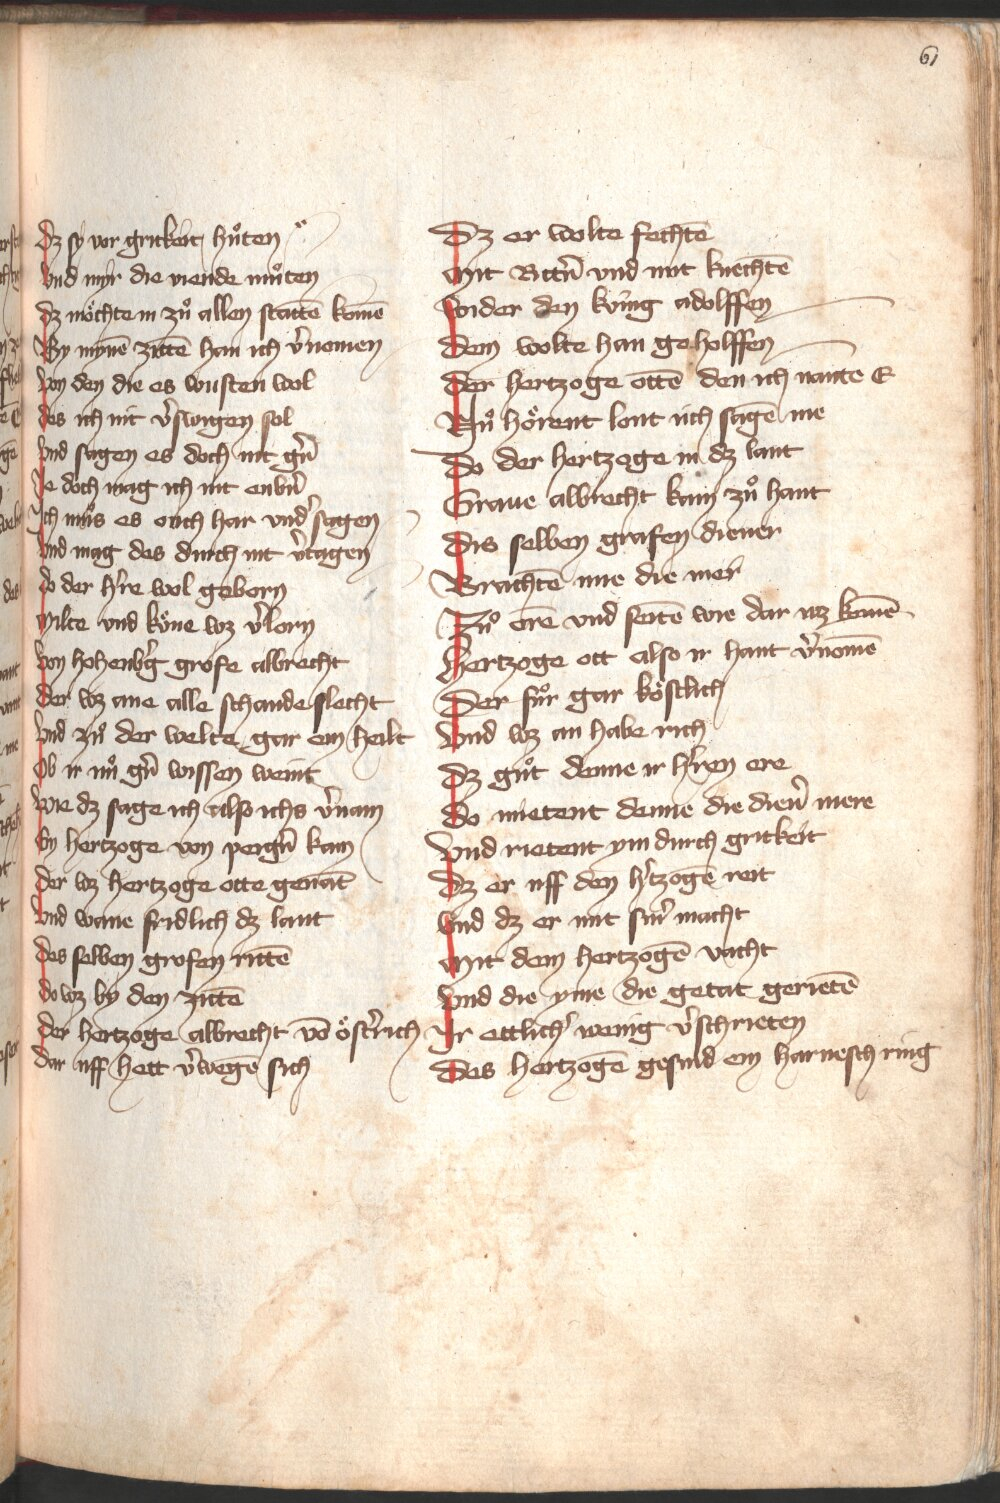 61
dz sy vor gritkeit hůten
Vnd myr die viende můten
dz möchte in zů allen stattē komē
By mynē zittē han ich v̓nomen
Von den die es wusten wol
des ich nit v̓swigen sol
Vnd sagen es doch nit gern̄
Je doch mag ich nit enbern̄
Ich můs es ouch har vnd̓ sagen
Vnd mag des durch nit v̓tagen
do der h̓re wol geborn
milte vnd köne wz v̓lorn
Von hohenb̓g grofe albrecht
der wz ane alle schande slecht
Vnd zů der welte gar ein heilt
Ob ir nů gern̄ wissen weint
Wie dz sage ich also ichs v̓nam
Ein hertzoge von peyern̄ kam
der wz hertzoge otte genāt
Vnd wane fridlich dz lant
des selben grofen rittē
do wz by den zittē
der hertzoge albrecht vō öst̓rich
dar uff hett v̓wegē sich
Dz er wolte fechtē
Mit Rittern̄ vnd mit knechtē
Wider den kúing adolffen
dem wolte han geholffen
Der hertzoge ottē den ich nante E
Nů hörent lont úch sagē me
Do der hertzoge in dz lant
Graue albrecht kam zů hant
Dis selben grafen diener
Brachtē ime die mer
Zů ore vnd seitē wie dar uz komē
Hertzoge ott also ir hant v̓nomē
Der fůr gar köstlich
Vnd wz an habe rich
Dz gůt denne ir h̓ren ere
Do mietent denne die dien̓ mere
Vnd rietent ym durch gritkeit
Dz er uff den h̓tzogē reit
Vnd dz er mit sin̓ macht
Mit dem hertzogē vacht
Vnd die yme die getat gerietē
Ir ettlich̓ wenig v̓schrieten
Des hertzogē gesind ein harnesch ring